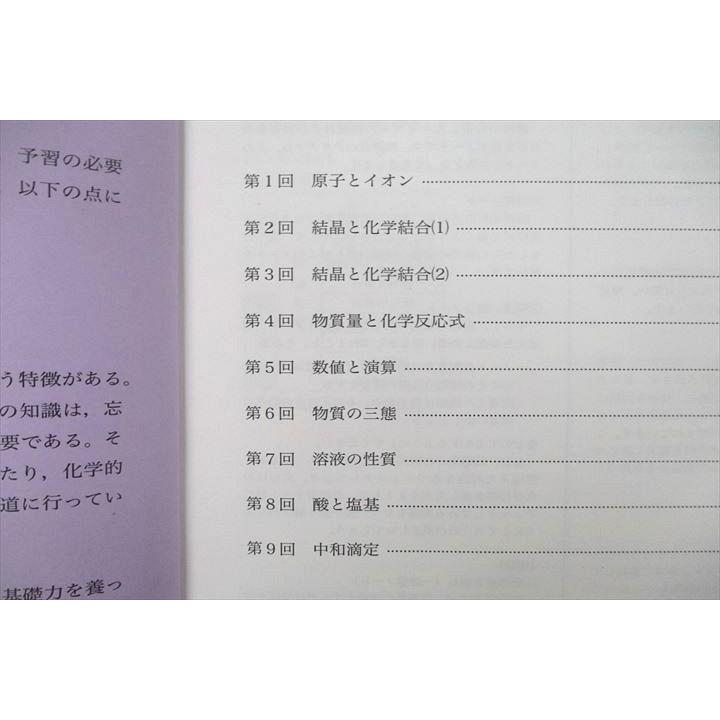 予習の必要
以下の点に
う特徴がある。
の知識は，忘
要である。そ
たり，化学的
道に行ってい
基礎力を養っ
第１回　原子とイオン
第２回　結晶と化学結合⑴
第３回　結晶と化学結合⑵
第４回　物質量と化学反応式
第５回　数値と演算
第６回　物質の三態
第７回　溶液の性質
第８回　酸と塩基
第９回　中和滴定